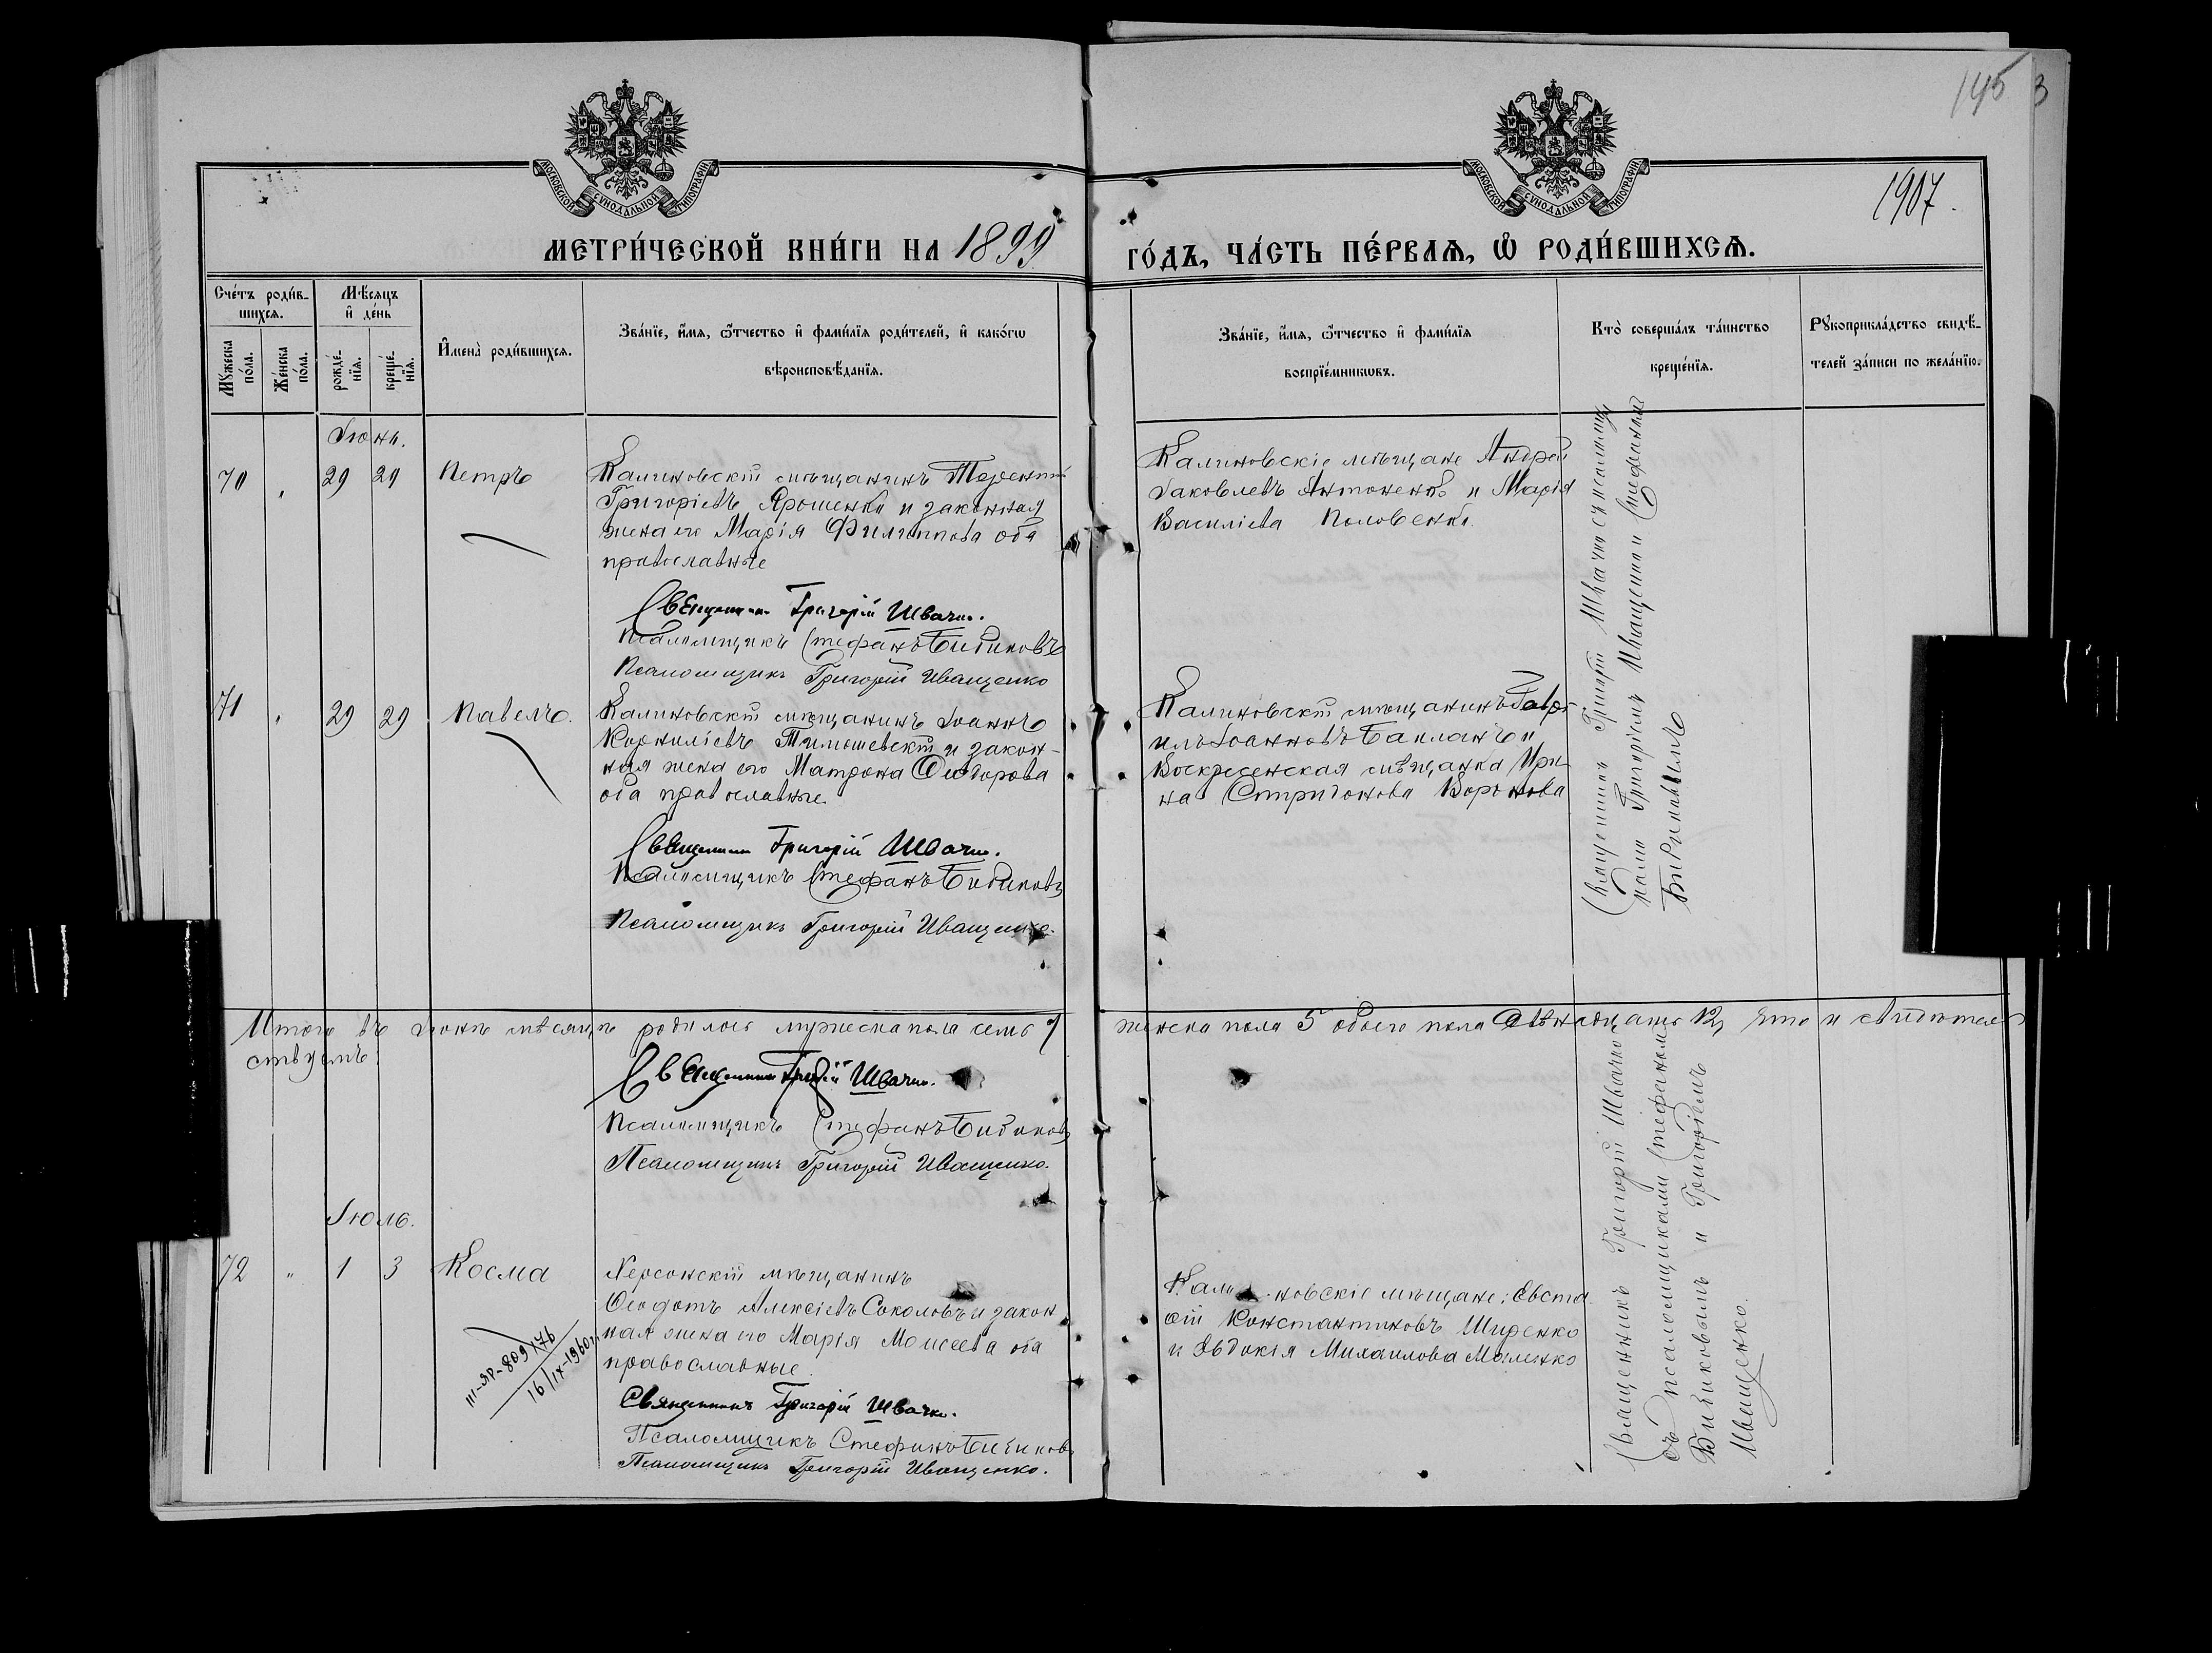 145
3
МОСКОВСКОЙ СУНОДАЛЬНОЙ ТИПОГРАФІИ
МОСКОВСКОЙ СУНОДАЛЬНОЙ ТИПОГРАФІИ
1907.
МЕТРИ́ЧЕСКОЙ КНИ́ГИ НА 1899
ГО́ДЪ, ЧА́СТЬ ПЕ́РВАѦ, Ѡ҆ РОДИ́ВШИХСѦ.
Сче́тъ роди́в-
шихсѧ.
Мѣ́сѧцъ
и҆ де́нь
Мꙋ́жеска
по́ла.
Же́нска
по́ла.
рожде́-
нїѧ.
креще́-
нїѧ.
И҆мена̀ роди́вшихсѧ.
Зва́нїе, и҆́мѧ, ѻ҆́тчество и҆ фами́лїѧ роди́телей, и҆ како́гѡ
вѣроисповѣ́данїѧ.
Зва́нїе, и҆́мѧ, ѻ҆́тчество и҆ фами́лїѧ
воспрїе́мникѡвъ.
Кто̀ соверша́лъ та́инство
креще́нїѧ.
Рꙋкоприкла́дство свидѣ́-
телей за́писи по жела́нїю.
Іюнь.
70 " 29 29 Петръ
Калиновскій мѣщанинъ Терентій
Григоріевъ Ярошенко и законная
жена его Марія Филиппова оба
православные
Священникъ Григорій Швачко.
Псаломщикъ Стефанъ Бибиковъ
Псаломщикъ Григорій Иващенко
Калиновскіе мѣщане Андрей
Іаковлевъ Антоненко и Марія
Василіева Половенко.
71 " 29 29 Павелъ.
Калиновскій мѣщанинъ Іоаннъ
Корниліевъ Тимошевскій и закон-
ная жена его Матрона Ѳеодорова
оба православные.
Священникъ Григорій Швачко.
Псаломщикъ Стефанъ Бибиковъ
Псаломщикъ Григорій Иващенко.
Калиновскій мѣщанинъ Гаврі-
илъ Іоанновъ Бакланъ и
Воскресенская мѣщанка Ири-
на Спиридонова Воронова
Священникъ Григорій Швачко съ псаломщи-
ками Григоріемъ Иващенко и Стефаномъ
Бибиковымъ
Итого въ Іюнѣ мѣсяцѣ родилось мужеска пола семь 7 женска пола 5 обоего пола Двѣнадцать 12, что и свидѣтель-
ствуемъ.
Священникъ Григорій Швачко.
Псаломщикъ Стефанъ Бибиковъ
Псаломщикъ Григорій Иващенко.
Іюль.
72 " 1 3 Косма
Херсонскій мѣщанинъ
Ѳеодотъ Алексіевъ Соколовъ и закон
ная жена его Марія Моисеева оба
православные.
Священникъ Григорій Швачко.
Псаломщикъ Стефанъ Бибиковъ
Псаломщикъ Григорій Иващенко.
III-ЯР-809176
16/IX-1960г.
Калиновскіе мѣщане: Евста
ѳій Константиновъ Шиденко
и Евдокія Михаилова Маленко
Священникъ Григорій Швачко
съ псаломщиками Стефаномъ
Бибиковымъ и Григоріемъ
Иващенко.